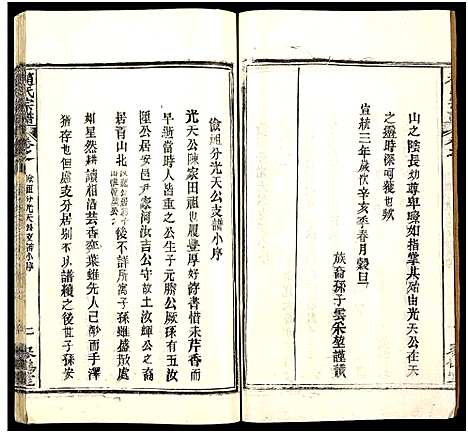 山之陰長幼尊卑瞭如指掌其殆由光天公在天
之靈時深呵護也歟
宣統三年歲次辛亥季春月穀旦
族裔孫子雲采堃謹識
儉祖分光天公支譜小序
光天公陳家田祖也履豐厚好詩書惜未芹香而
早逝當時人皆重之公生子元勝公厥孫有五汝
匯公居安邑尹家河汝吉公守故土汝輝公之裔
居百山北
後不詳所寓子孫雖散處
如星然耕讀祖洛芸香奕葉雖先人已歿手澤
猶存也但慮支分居別不以譜稷之後世子孫安
趙氏宗譜
卷之
儉祖分光天公支譜小序
二
琴鶴堂